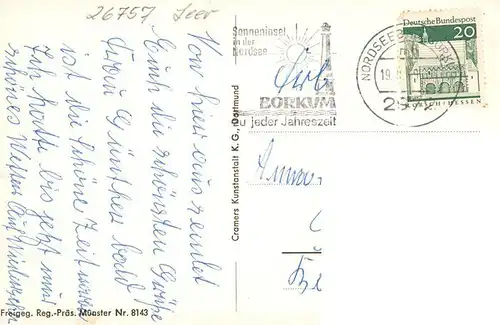 26757 Leer
Von hier aus sendet
Euch die schönsten Grüße
Frau Günther bald
ist die schöne Zeit
Ich hatte bis jetzt nur
schönes Wetter Auf Wiedersehen
Freigeg. Reg.-Präs. Münster Nr. 8143
Cramers Kunstanstalt K. G., Dortmund
Sonneninsel
in der
Nordsee
BORKUM
zu jeder Jahreszeit
NORDSEEBAD
19.
Deutsche Bundespost
20
LORSCH/HESSEN